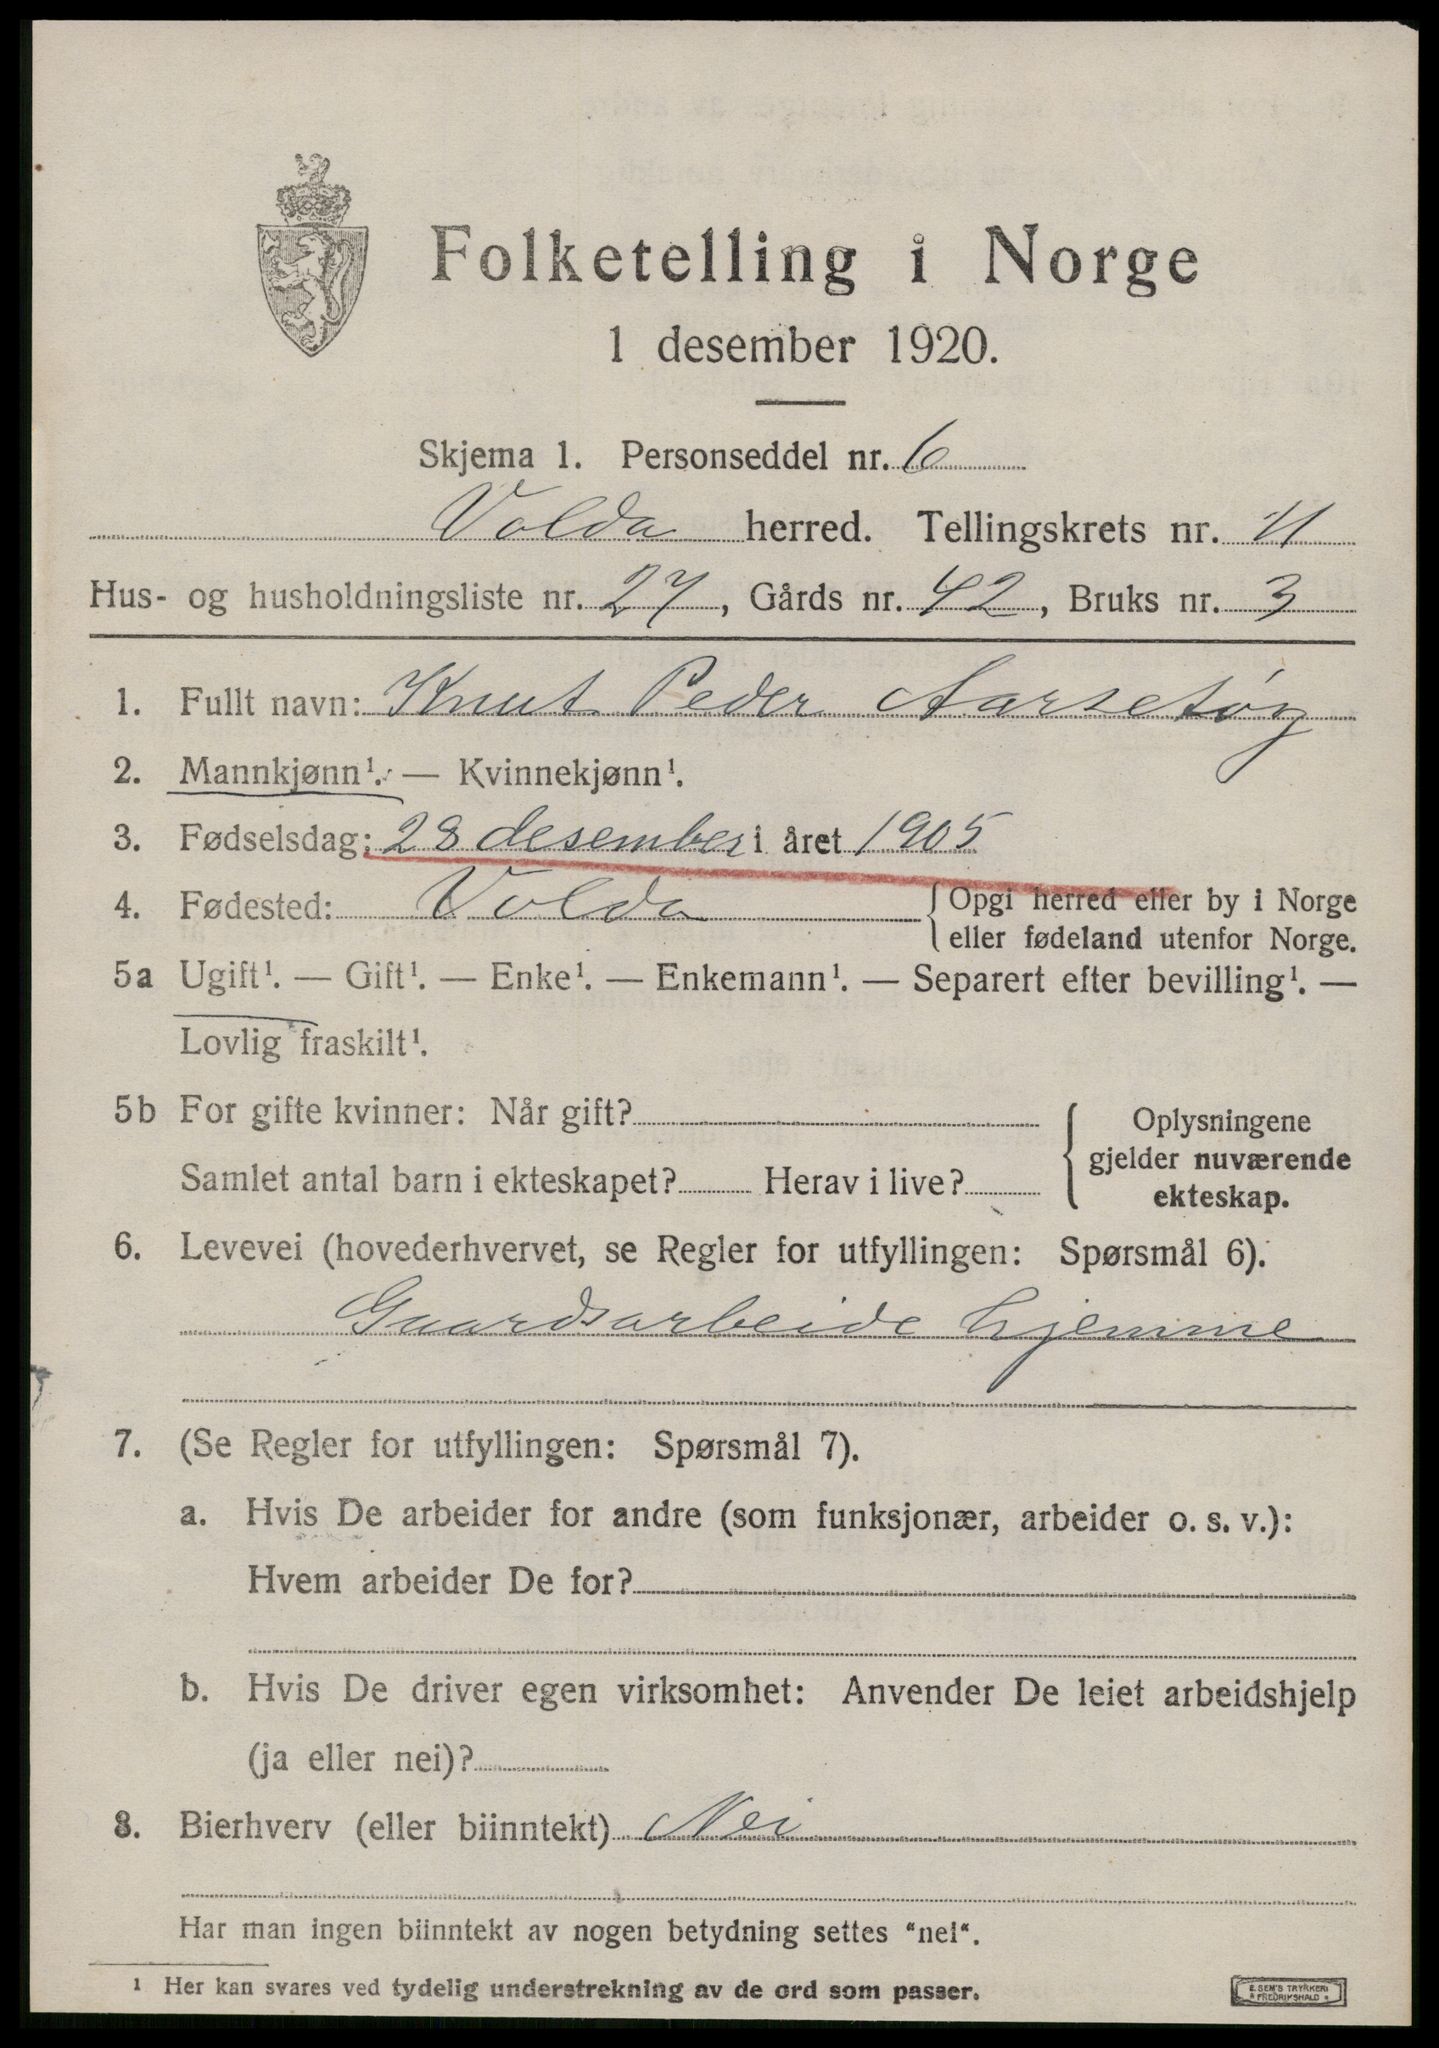 Folketelling i Norge
1 desember 1920.
Skjema 1. Personseddel nr. 6
Volda herred. Tellingskrets nr. 11
Hus- og husholdningsliste nr. 27, Gårds nr. 42, Bruks nr. 3
1. Fullt navn: Knut Peder Aarsetøy
2. Mannkjønn¹. — Kvinnekjønn¹.
3. Fødselsdag: 28 desember i året 1905
4. Fødested: Volda { Opgi herred eller by i Norge
eller fødeland utenfor Norge.
5a Ugift¹. — Gift¹. — Enke¹. — Enkemann¹. — Separert efter bevilling¹. —
Lovlig fraskilt¹.
5b For gifte kvinner: Når gift? { Oplysningene
gjelder nuværende
Samlet antal barn i ekteskapet? Herav i live? ekteskap.
6. Levevei (hovederhvervet, se Regler for utfyllingen: Spørsmål 6).
Gaardsarbeide hjemme
7. (Se Regler for utfyllingen: Spørsmål 7).
a. Hvis De arbeider for andre (som funksjonær, arbeider o. s. v.):
Hvem arbeider De for?
b. Hvis De driver egen virksomhet: Anvender De leiet arbeidshjelp
(ja eller nei)?
8. Bierhverv (eller biinntekt) Nei
Har man ingen biinntekt av nogen betydning settes "nei".
¹ Her kan svares ved tydelig understrekning av de ord som passer.
E. SEM'S TRYKKERI
FREDRIKSHALD